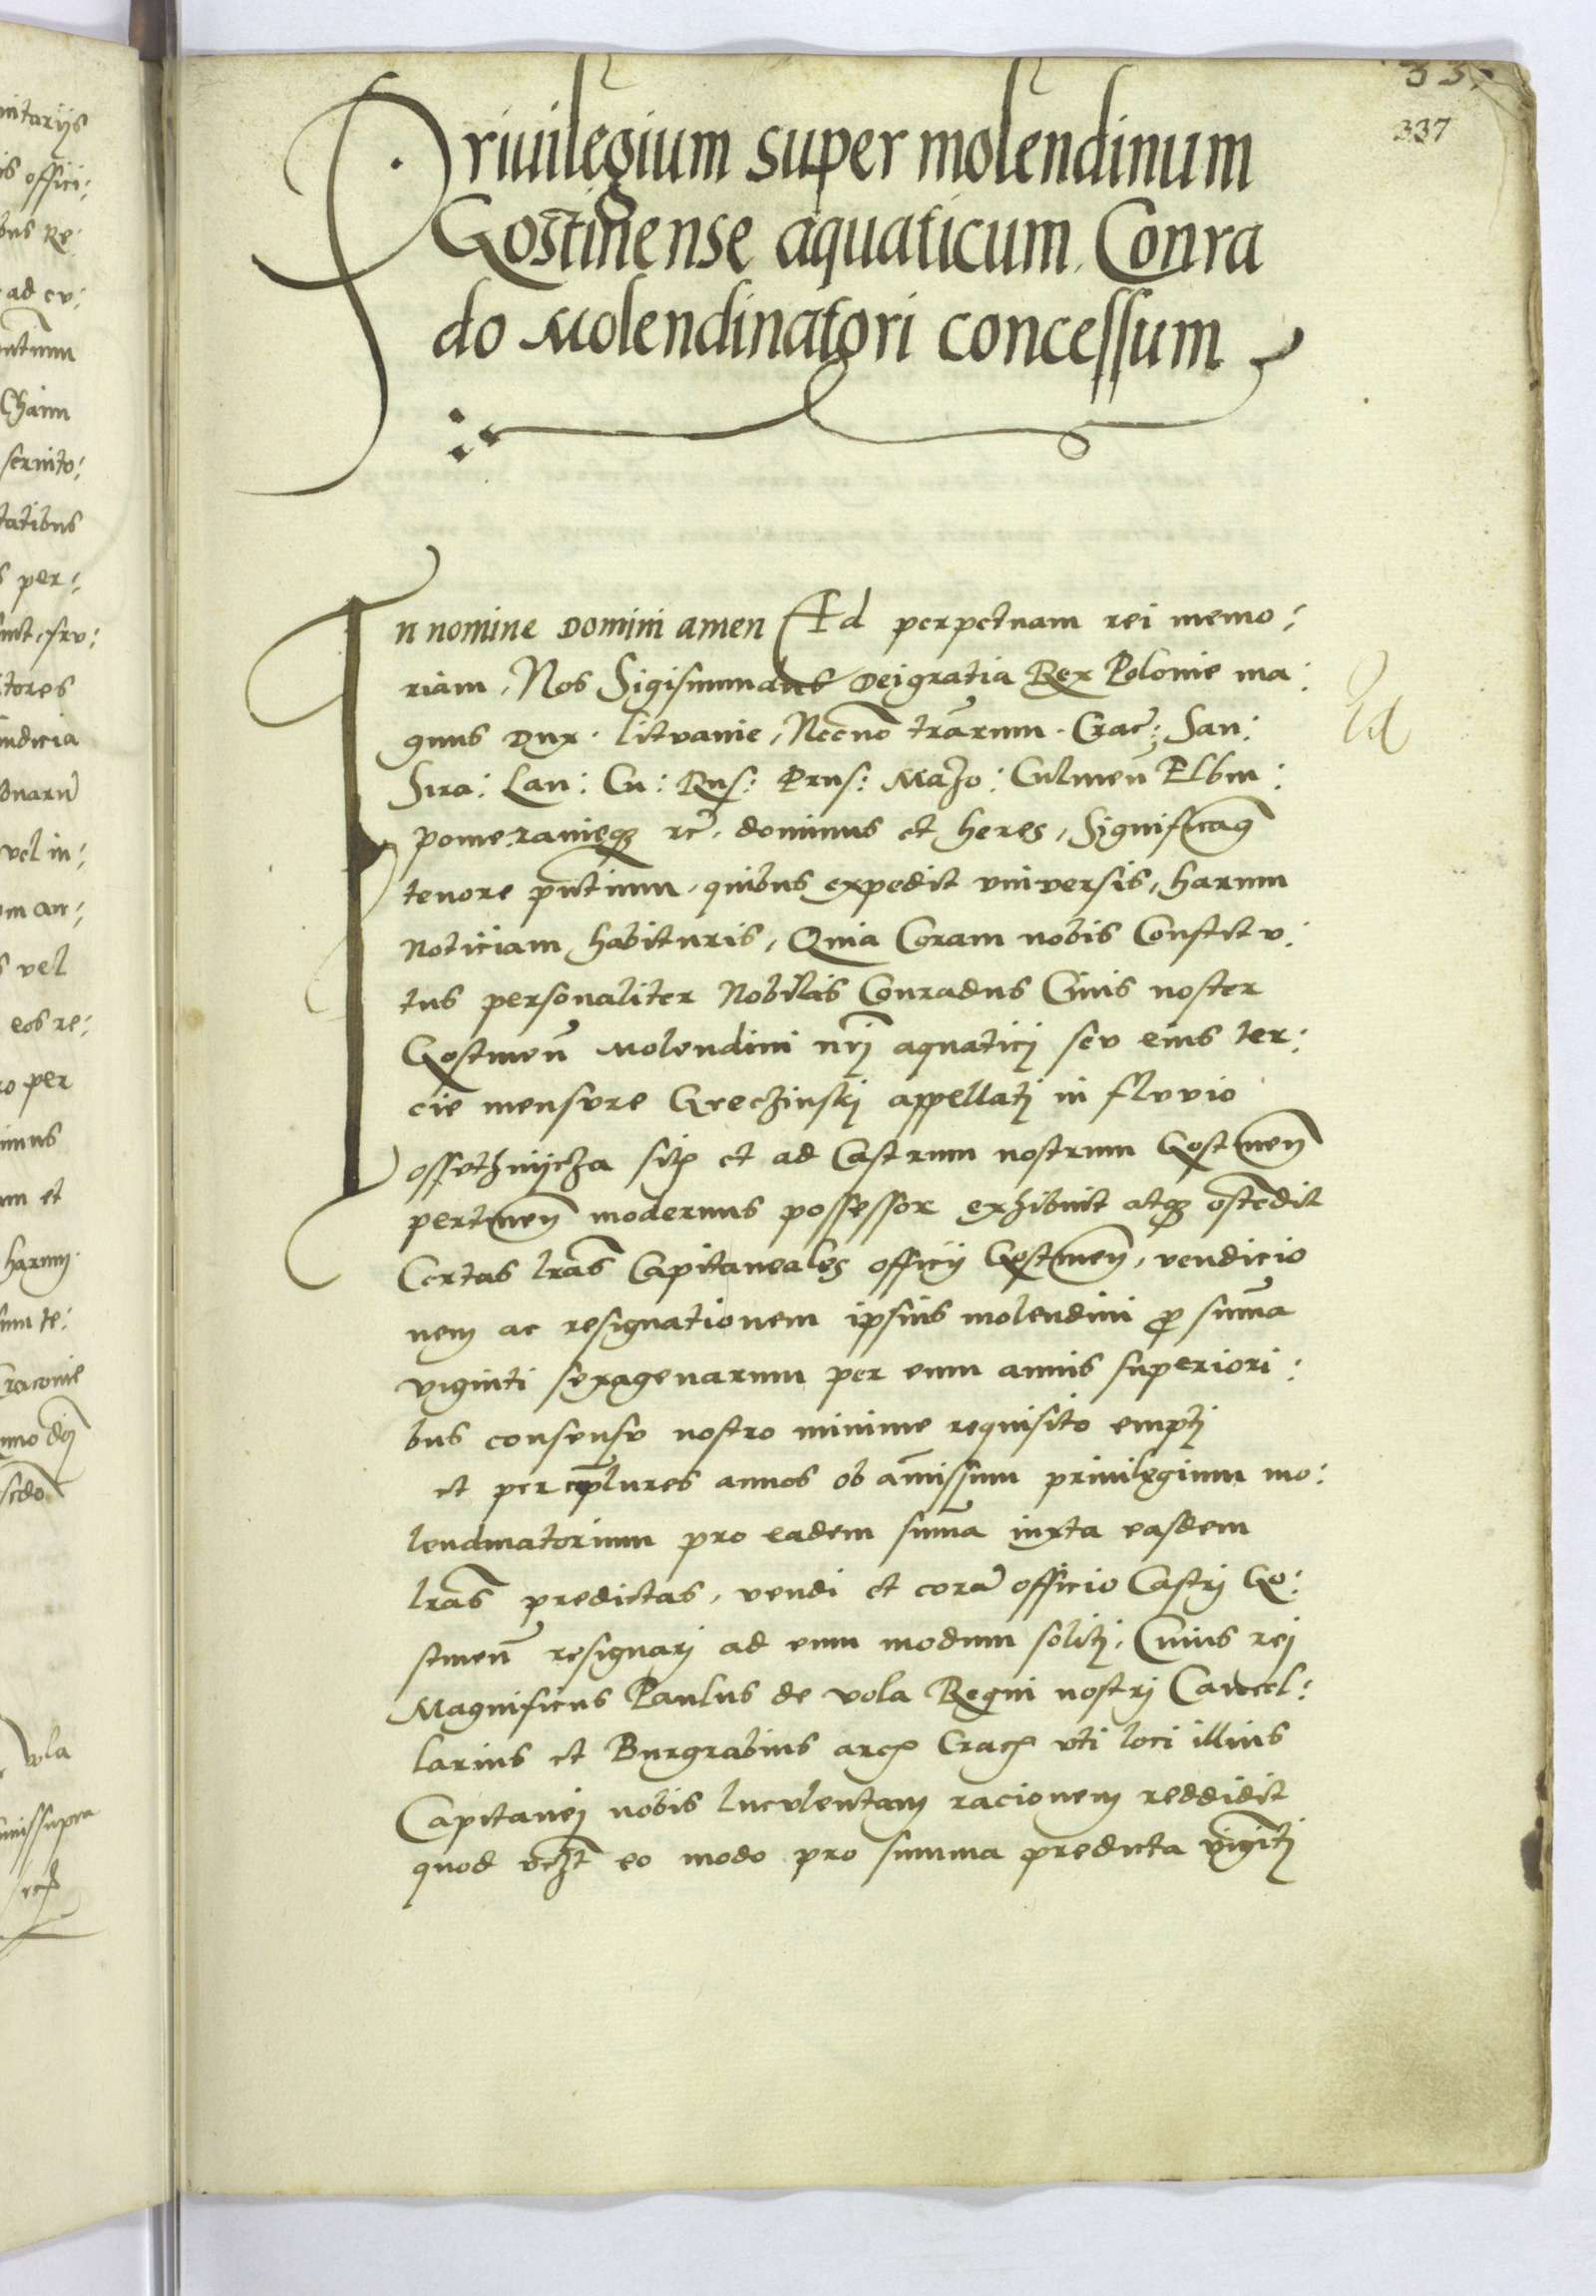 337
Priuilegium super molendinum
Gostinense aquaticum Conra
do Molendinatori concessum
In nomine Domini amen Ad perpetuam rei memo:
riam, Nos Sigismundus Dei gratia Rex Polonie ma:
gnus Dux Litvanie, Necno trarum Crac: San:
Sira: Lan: Cu: Rus: Prus: Mazo: Culmen Elbin:
pomeranieqz dominus et heres, Significam
tenore pntium, quibus expedit vniversis, harum
Noticiam habituris, Quia Coram nobis Constitu:
tus personaliter Nobilis Conradus Ciuis noster
Gostinen Molendini nri aquatici seu eius ter:
cie mensvre Greczinski appellati in flvvio
ossethnijcza et ad Castrum nostrum Gostinen
pertinen modernus possessor exhibuit atqz ostedit
Certas lras Capitaneales officij Gostinen, vendicio
nem ac resignationem ipsius molendini p suma
viginti sexagenarum per eum annis superiori:
bus consensu nostro minime requisito empti
et per cplures annos ob amissum priuilegium mo:
lendinatorium pro eadem suma iuxta easdem
lras predictas, vendi et cora officio Castri Go:
stinen resignari ad eum modum soliti, Cuius rei
Magnificus Paulus de vola Regni nostri Cancel:
larius et Burgrabius arc Crac vti loci illius
Capitanei nobis luculentam racionem reddidit
quod vczt eo modo pro summa predicta viginti